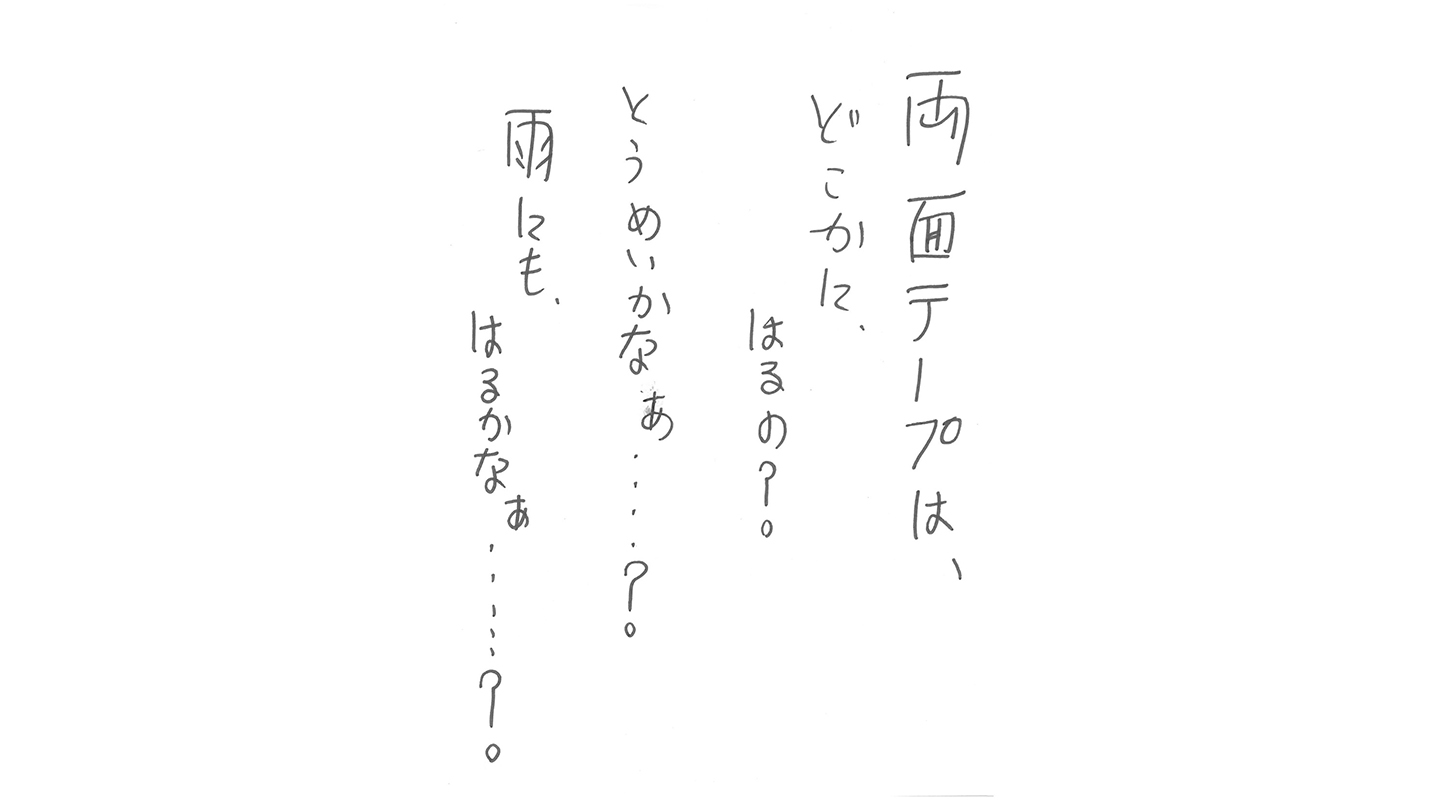 両面テープは、
どこかに、
はるの？。
とうめいかなぁ‥‥？。
雨にも、
はるかなぁ……？。